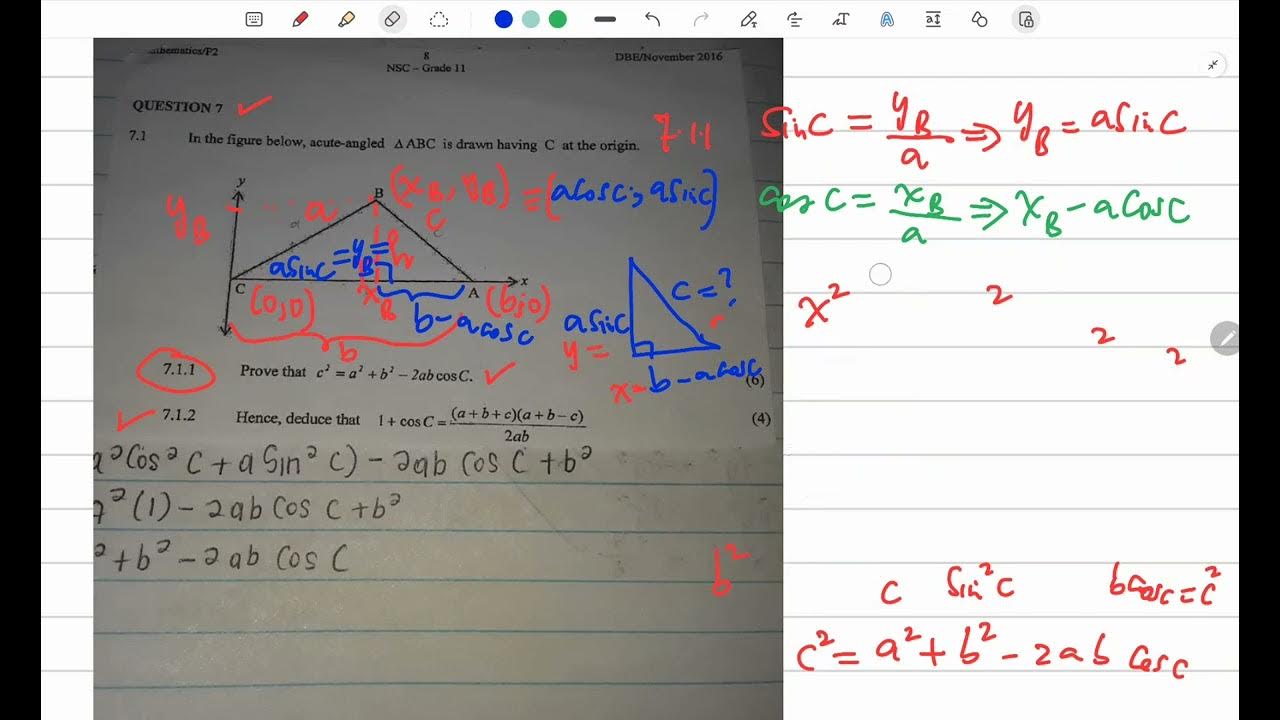 thematics/P2
8
NSC – Grade 11
DBE/November 2016
QUESTION 7 ✓
7.1 In the figure below, acute-angled △ABC is drawn having C at the origin.
7.1.1
y
B
(x_B, y_B) = (acosC; asinC)
y_B
a
a
C
c
asinC = y_B = h
C
A
x
(0;0)
x_B
(b;0)
b - acosC
b
C = ?
asinC
y =
r
x = b - acosC
7.1.1 Prove that c² = a² + b² – 2ab cos C. ✓
(6)
✓ 7.1.2 Hence, deduce that 1 + cos C = (a + b + c)(a + b – c) / 2ab
(4)
a² Cos² C + a Sin² C) - 2ab Cos C + b²
² (1) - 2ab Cos C + b²
² + b² - 2ab Cos C
b²
SinC = y_B / a ⇒ y_B = asinC
cos C = x_B / a ⇒ x_B - aCosC
x² 2
2
2
C Sin²C bcosc = c²
c² = a² + b² - 2ab cosc